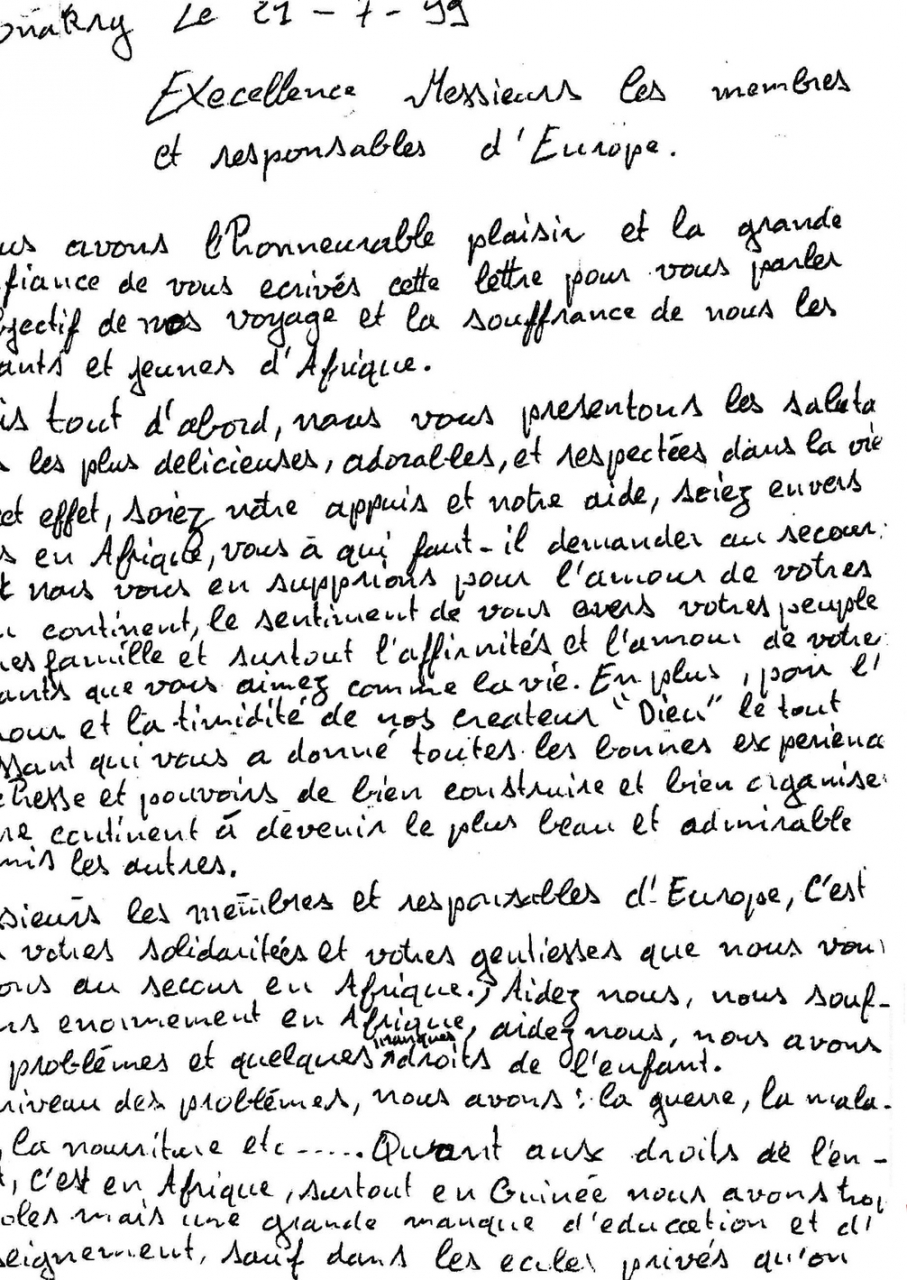 onakry Le 21 - 7 - 99
Execellence Messieurs les membres
et responsables d'Europe.
us avons l'honneurable plaisir et la grande
fiance de vous ecrivés cette lettre pour vous parler
bjectif de nos voyage et la souffrance de nous les
ants et jeunes d'Afrique.
is tout d'abord, nous vous presentons les saluta
les plus délicieuses, adorables, et respectées dans la vie
cet effet, soiez nôtre appuis et notre aide, soiez envers
s en Afrique, vous à qui faut-il demander au secour
t nous vous en supprions pour l'amour de votres
continent, le sentiment de vous avers votres peuple
famille et surtout l'affinités et l'amour de votre
ants que vous aimez comme la vie. En plus, pour l'
mour et la timidité de nos createur "Dieu" le tout
ssant qui vous a donné toutes les bonnes experienc
chesse et pouvoirs de bien construire et bien organise
re continent à devenir le plus beau et admirable
mis les autres.
sieurs les membres et responsables d'Europe, C'est
votres solidaritées et votres gentiesses que nous vou
ons au secour en Afrique. Aidez nous, nous souf-
ns enormement en Afrique, aidez nous, nous avons
problèmes et quelques manques droits de l'enfant.
niveau des problèmes, nous avons : la guerre, la mala-
la nourriture etc ..... Quant aux droits de l'en-
t, C'est en Afrique, surtout en Guinée nous avons trop
oles mais une grande manque d'education et d'
seignement, sauf dans les ecoles privés qu'on